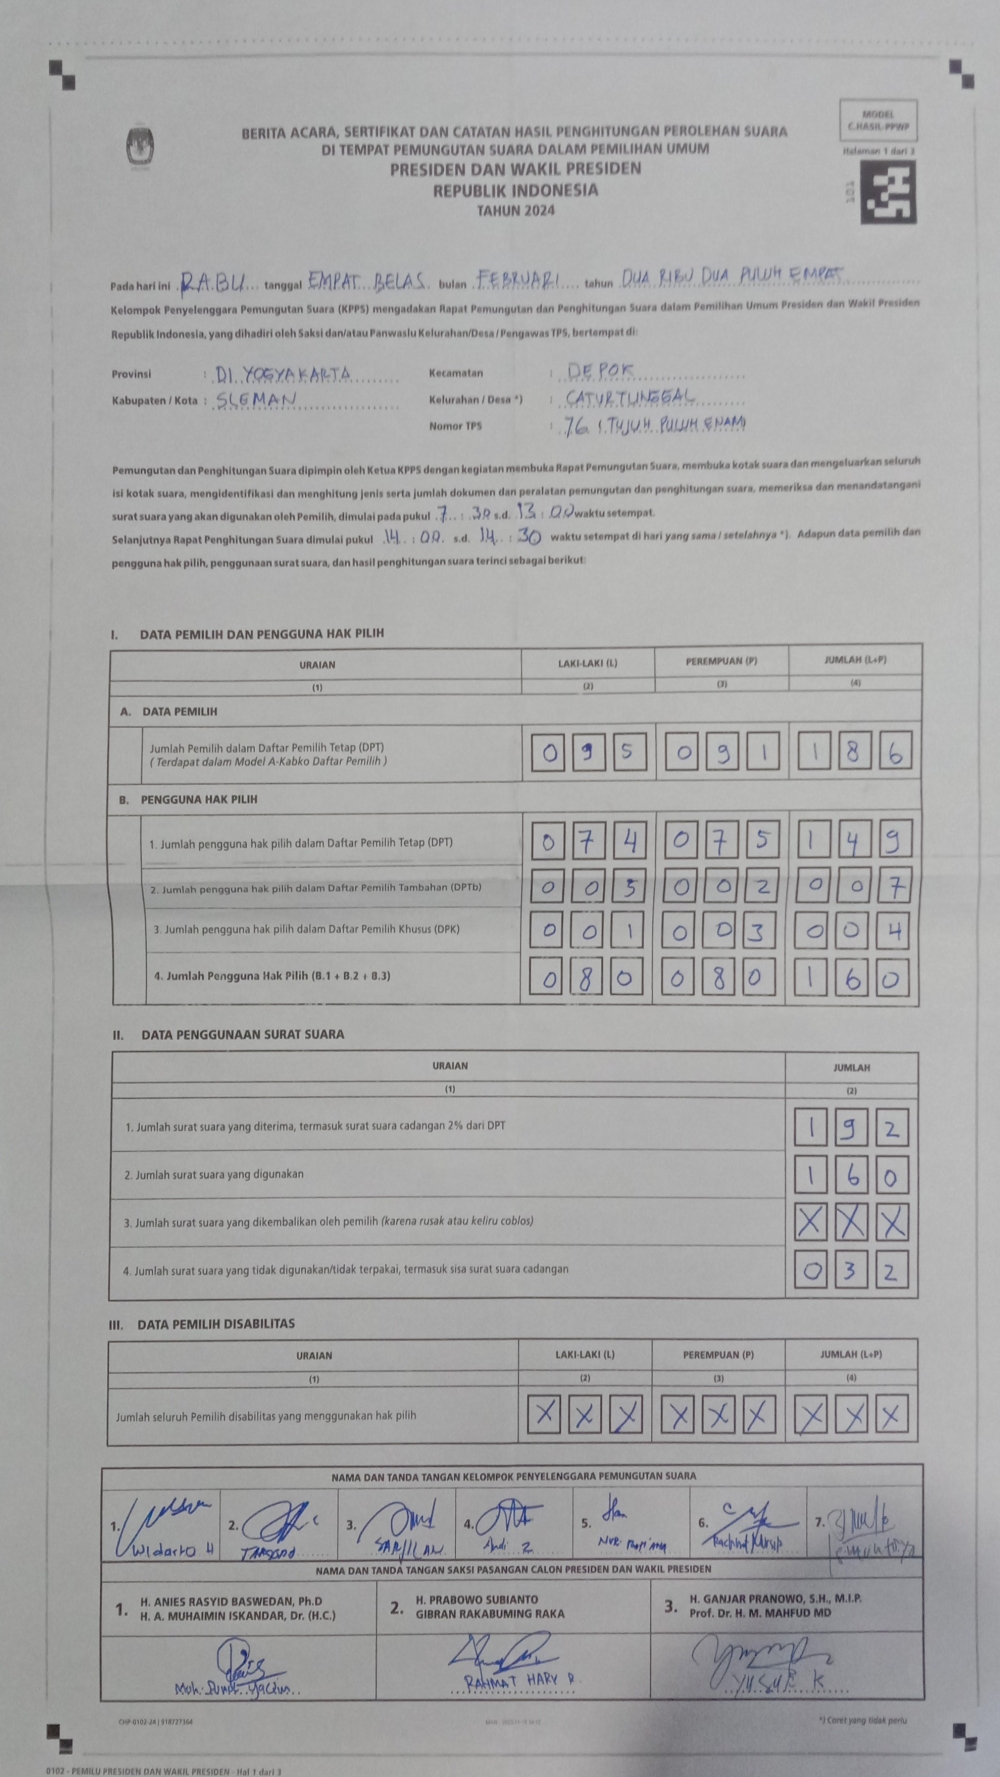 MODEL
C.HASIL-PPWP
Halaman 1 dari 3
101
BERITA ACARA, SERTIFIKAT DAN CATATAN HASIL PENGHITUNGAN PEROLEHAN SUARA
DI TEMPAT PEMUNGUTAN SUARA DALAM PEMILIHAN UMUM
PRESIDEN DAN WAKIL PRESIDEN
REPUBLIK INDONESIA
TAHUN 2024
Pada hari ini RABU tanggal EMPAT BELAS bulan FEBRUARI tahun DUA RIBU DUA PULUH EMPAT
Kelompok Penyelenggara Pemungutan Suara (KPPS) mengadakan Rapat Pemungutan dan Penghitungan Suara dalam Pemilihan Umum Presiden dan Wakil Presiden
Republik Indonesia, yang dihadiri oleh Saksi dan/atau Panwaslu Kelurahan/Desa/Pengawas TPS, bertempat di:
Provinsi : DI. YOGYAKARTA Kecamatan : DEPOK
Kabupaten / Kota : SLEMAN Kelurahan / Desa *) : CATURTUNGGAL
Nomor TPS : 76 (TUJUH PULUH ENAM)
Pemungutan dan Penghitungan Suara dipimpin oleh Ketua KPPS dengan kegiatan membuka Rapat Pemungutan Suara, membuka kotak suara dan mengeluarkan seluruh
isi kotak suara, mengidentifikasi dan menghitung jenis serta jumlah dokumen dan peralatan pemungutan dan penghitungan suara, memeriksa dan menandatangani
surat suara yang akan digunakan oleh Pemilih, dimulai pada pukul 7 : 30 s.d. 13 : 00 waktu setempat.
Selanjutnya Rapat Penghitungan Suara dimulai pukul 14 : 00 s.d. 14 : 30 waktu setempat di hari yang sama / setelahnya *). Adapun data pemilih dan
pengguna hak pilih, penggunaan surat suara, dan hasil penghitungan suara terinci sebagai berikut:
I. DATA PEMILIH DAN PENGGUNA HAK PILIH
URAIAN LAKI-LAKI (L) PEREMPUAN (P) JUMLAH (L+P)
(1) (2) (3) (4)
A. DATA PEMILIH
Jumlah Pemilih dalam Daftar Pemilih Tetap (DPT) 0 9 5 0 9 1 1 8 6
( Terdapat dalam Model A-Kabko Daftar Pemilih )
B. PENGGUNA HAK PILIH
1. Jumlah pengguna hak pilih dalam Daftar Pemilih Tetap (DPT) 0 7 4 0 7 5 1 4 9
2. Jumlah pengguna hak pilih dalam Daftar Pemilih Tambahan (DPTb) 0 0 5 0 0 2 0 0 7
3. Jumlah pengguna hak pilih dalam Daftar Pemilih Khusus (DPK) 0 0 1 0 0 3 0 0 4
4. Jumlah Pengguna Hak Pilih (B.1 + B.2 + B.3) 0 8 0 0 8 0 1 6 0
II. DATA PENGGUNAAN SURAT SUARA
URAIAN JUMLAH
(1) (2)
1. Jumlah surat suara yang diterima, termasuk surat suara cadangan 2% dari DPT 1 9 2
2. Jumlah surat suara yang digunakan 1 6 0
3. Jumlah surat suara yang dikembalikan oleh pemilih (karena rusak atau keliru coblos) X X X
4. Jumlah surat suara yang tidak digunakan/tidak terpakai, termasuk sisa surat suara cadangan 0 3 2
III. DATA PEMILIH DISABILITAS
URAIAN LAKI-LAKI (L) PEREMPUAN (P) JUMLAH (L+P)
(1) (2) (3) (4)
Jumlah seluruh Pemilih disabilitas yang menggunakan hak pilih X X X X X X X X X
NAMA DAN TANDA TANGAN KELOMPOK PENYELENGGARA PEMUNGUTAN SUARA
1. 2. 3. 4. 5. 6. 7.
Widarto H Andi Z
NAMA DAN TANDA TANGAN SAKSI PASANGAN CALON PRESIDEN DAN WAKIL PRESIDEN
1. H. ANIES RASYID BASWEDAN, Ph.D
H. A. MUHAIMIN ISKANDAR, Dr. (H.C.)
2. H. PRABOWO SUBIANTO
GIBRAN RAKABUMING RAKA
3. H. GANJAR PRANOWO, S.H., M.I.P.
Prof. Dr. H. M. MAHFUD MD
Moh. RAHMAT HARY R K
CHP-0102-24 | 918727364
*) Coret yang tidak perlu
0102 - PEMILU PRESIDEN DAN WAKIL PRESIDEN - Hal 1 dari 3